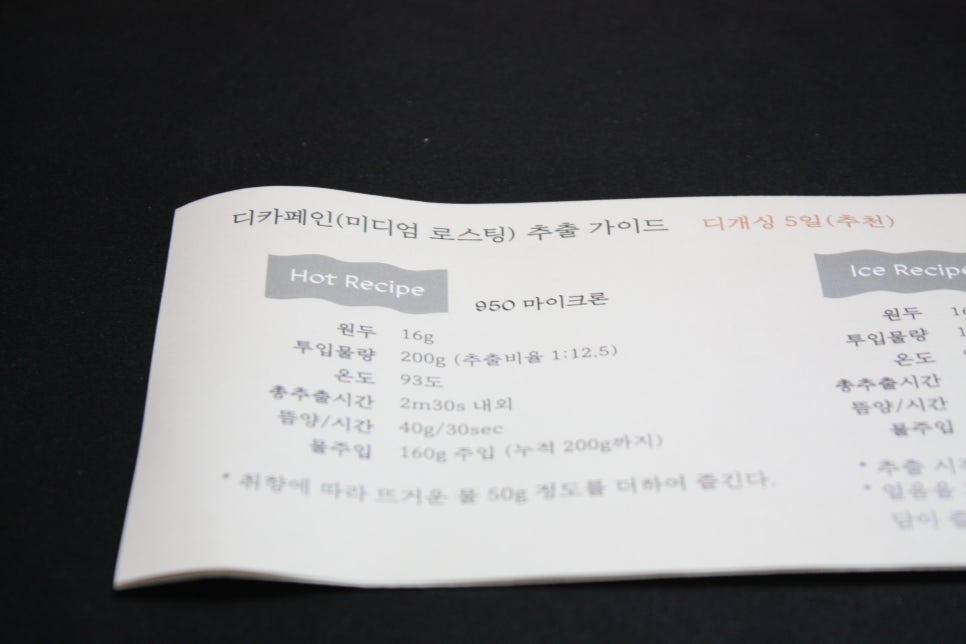 디카페인(미디엄 로스팅) 추출 가이드 디개싱 5일(추천)
Hot Recipe
950 마이크론
원두 16g
투입물량 200g (추출비율 1:12.5)
온도 93도
총추출시간 2m30s 내외
뜸양/시간 40g/30sec
물주입 160g 주입 (누적 200g까지)
* 취향에 따라 뜨거운 물 50g 정도를 더하여 즐긴다.
Ice Recipe
원두
투입물량
온도
총추출시간
뜸양/시간
물주입
* 추출
* 얼음을
담아